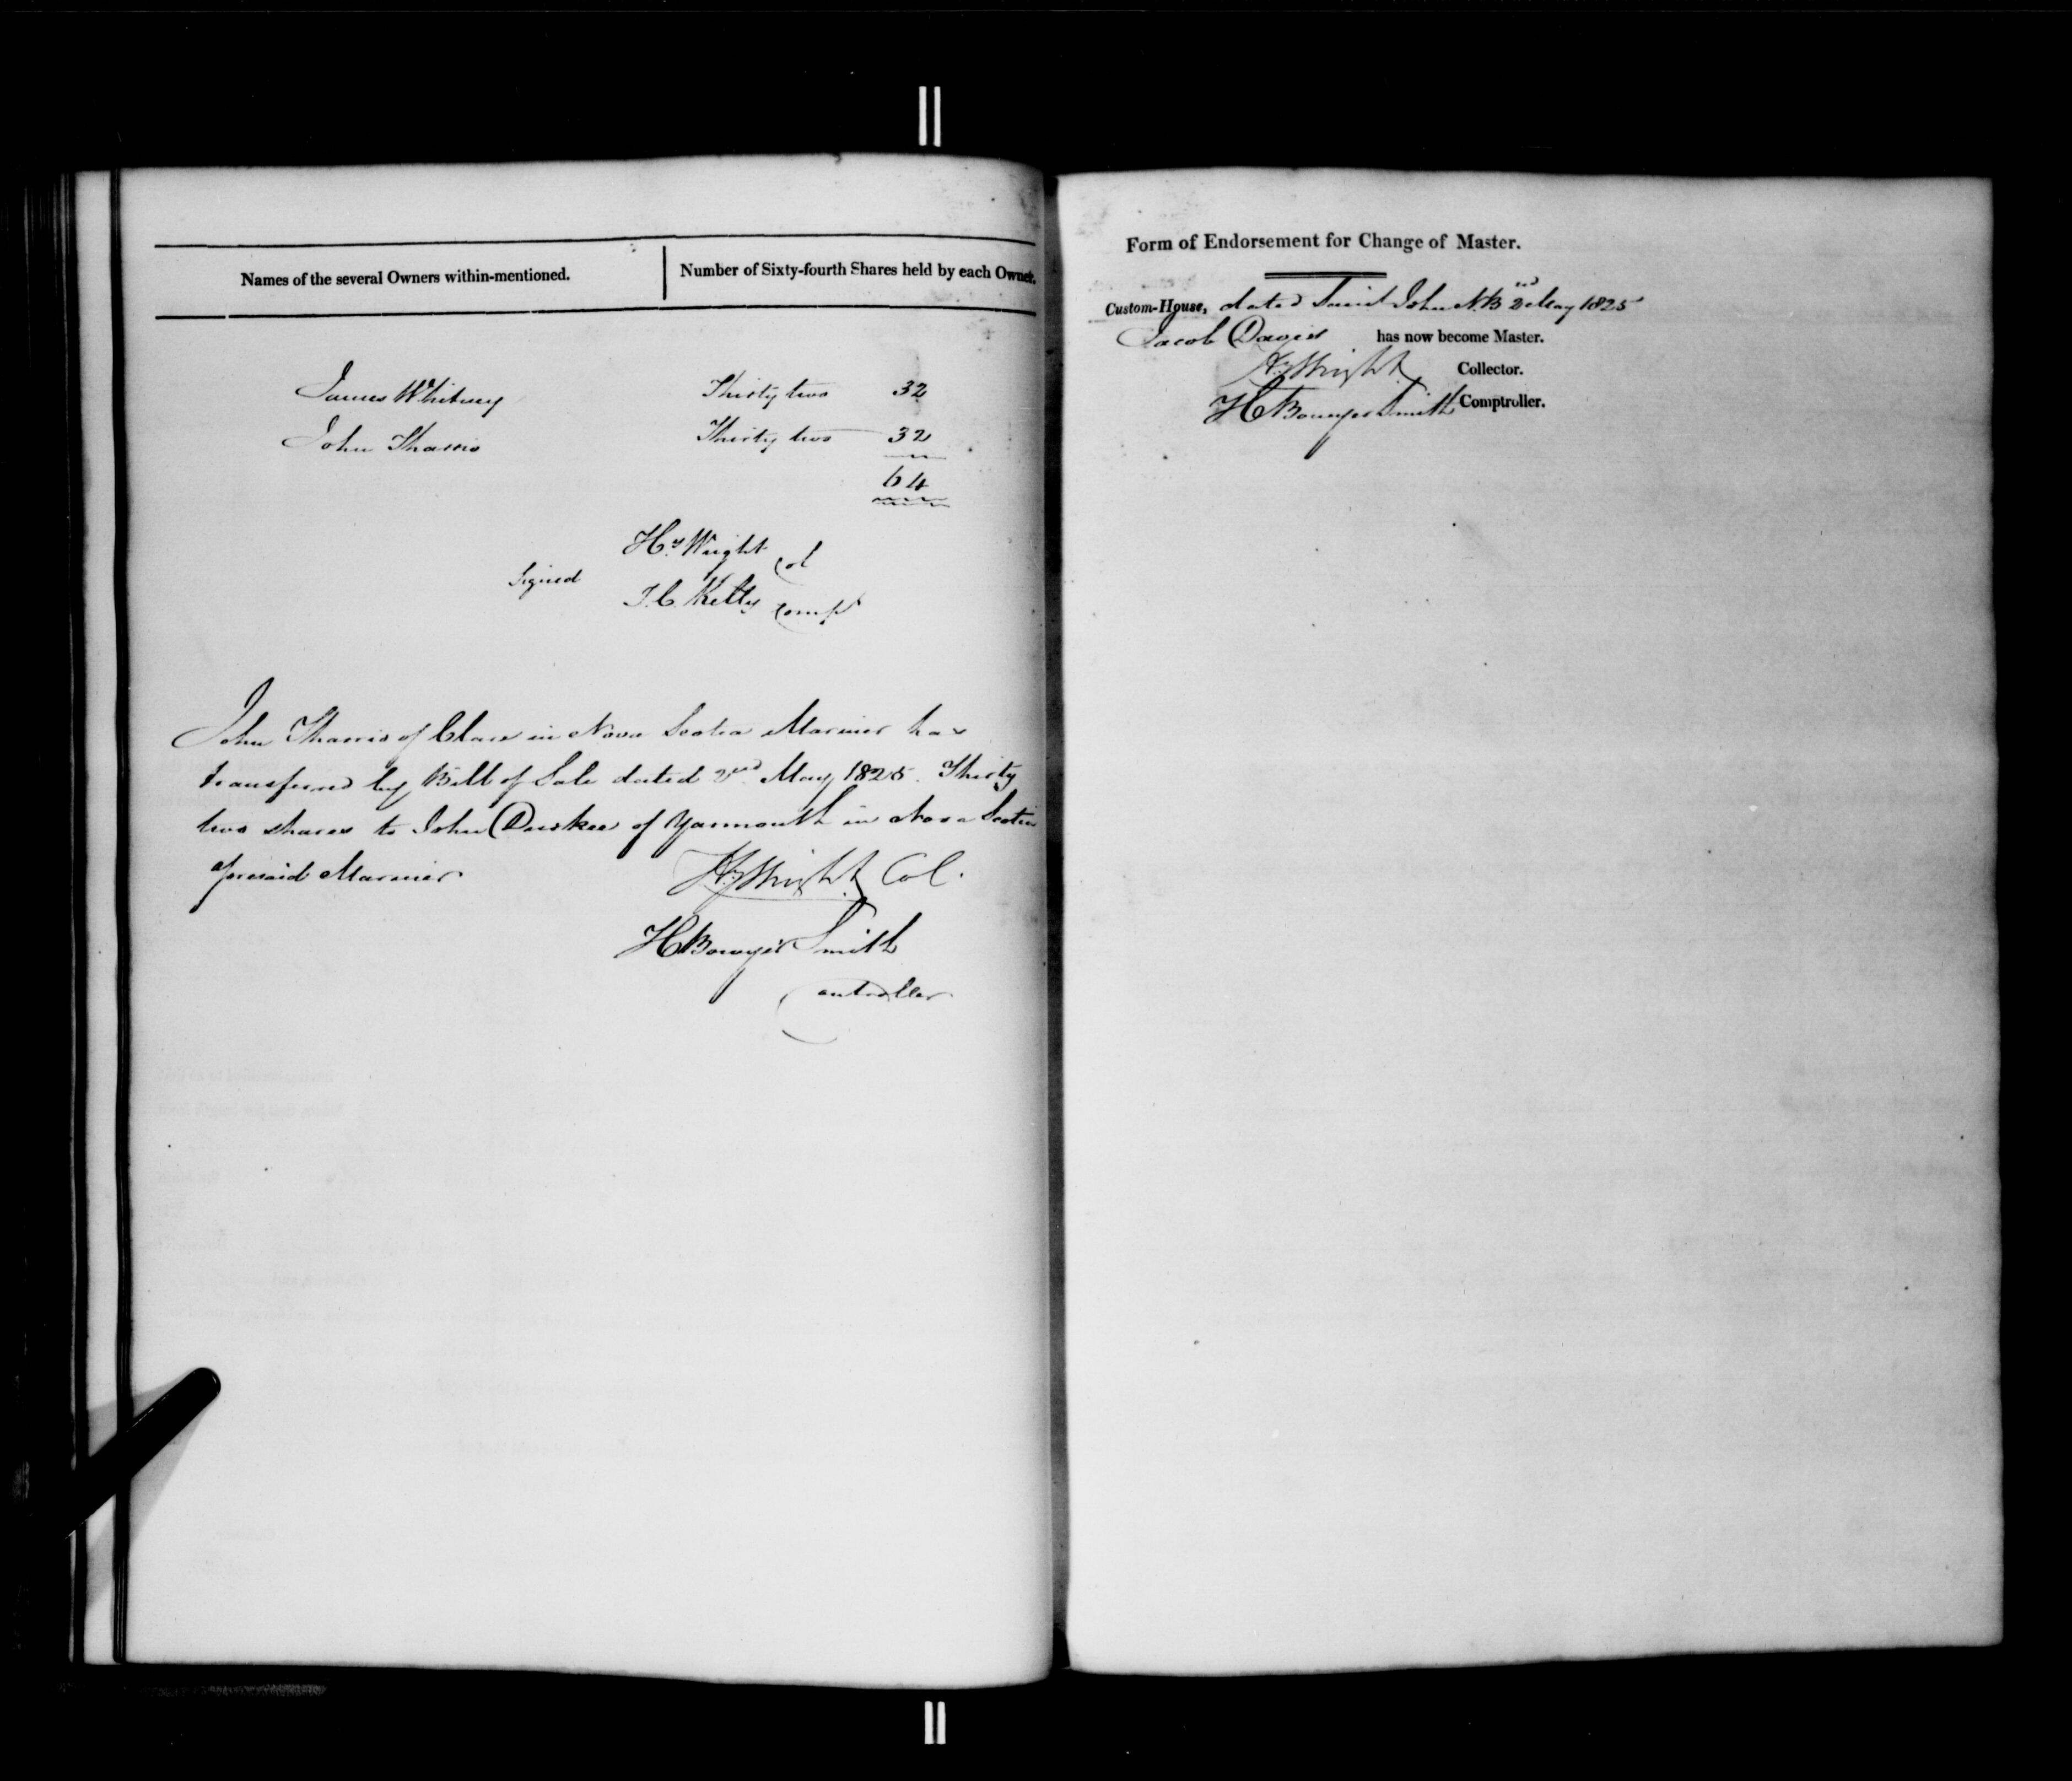 Names of the several Owners within-mentioned.
Number of Sixty-fourth Shares held by each Owner.
James Whitney Thirty two 32
John Tharris Thirty two 32
64
Signed
Hy Wright Col
T. C. Kelly Compt
John Tharris of Clare in Nova Scotia Mariner has
transferred by Bill of Sale dated 2nd May 1825. Thirty
two shares to John Durkee of Yarmouth in Nova Scotia
aforesaid Mariner
Hy Wright Col.
H Bowyer Smith
Controller
Form of Endorsement for Change of Master.
Custom-House, dated Saint John N.B 2nd May 1825
Jacob Davis has now become Master.
Hy Wright Collector.
H Bowyer Smith Comptroller.